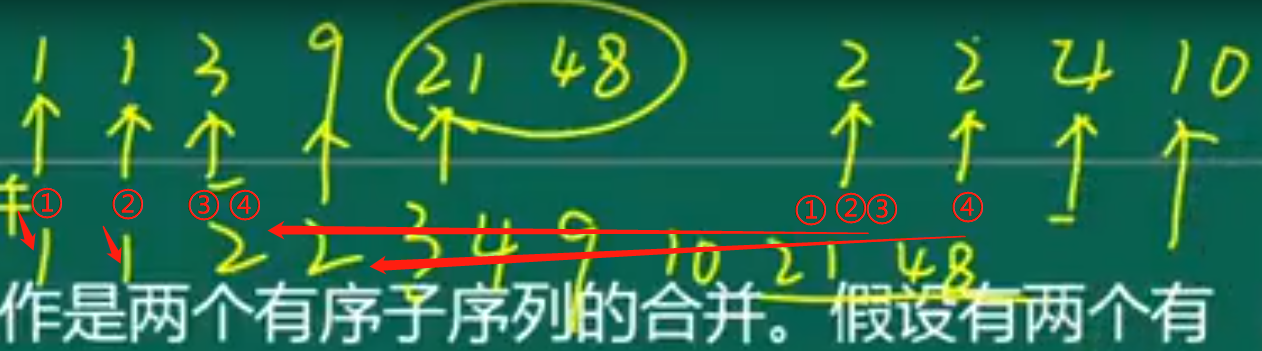 1 1 3 9 21 48 2 2 4 10
① ② ③ ④ ① ② ③ ④
1 1 2 2 3 4 9 10 21 48
作是两个有序子序列的合并。假设有两个有